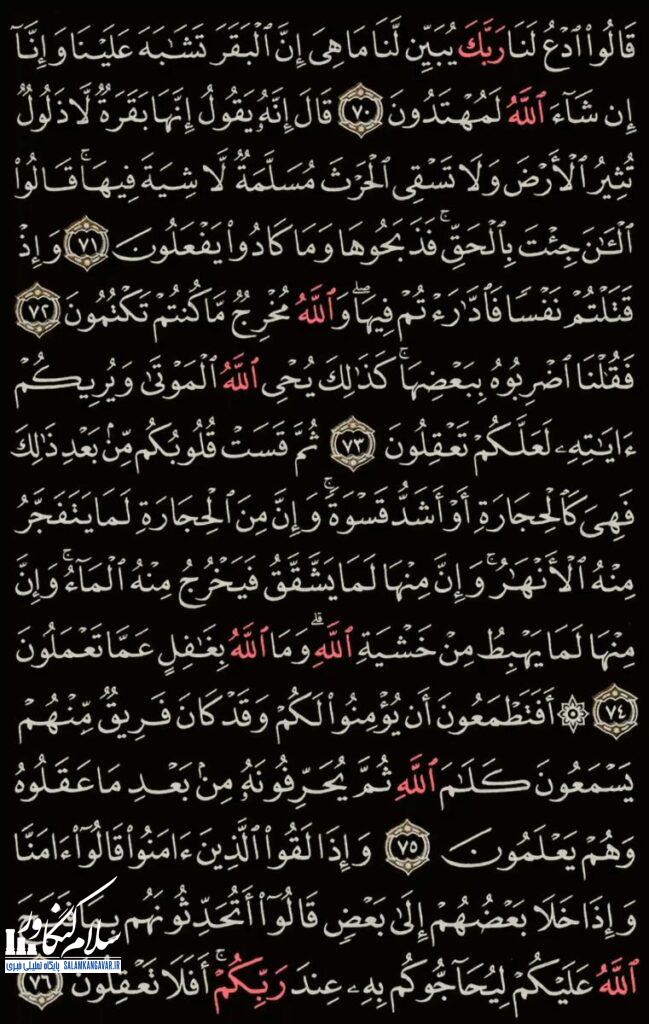 قَالُوا۟ ٱدْعُ لَنَا رَبَّكَ يُبَيِّن لَّنَا مَا هِىَ إِنَّ ٱلْبَقَرَ تَشَـٰبَهَ عَلَيْنَا وَإِنَّآ
إِن شَآءَ ٱللَّهُ لَمُهْتَدُونَ ٧٠ قَالَ إِنَّهُۥ يَقُولُ إِنَّهَا بَقَرَةٌ لَّا ذَلُولٌ
تُثِيرُ ٱلْأَرْضَ وَلَا تَسْقِى ٱلْحَرْثَ مُسَلَّمَةٌ لَّا شِيَةَ فِيهَا ۚ قَالُوا۟
ٱلْـَٔـٰنَ جِئْتَ بِٱلْحَقِّ ۚ فَذَبَحُوهَا وَمَا كَادُوا۟ يَفْعَلُونَ ٧١ وَإِذْ
قَتَلْتُمْ نَفْسًا فَٱدَّٰرَْٰٔتُمْ فِيهَا ۖ وَٱللَّهُ مُخْرِجٌ مَّا كُنتُمْ تَكْتُمُونَ ٧٢
فَقُلْنَا ٱضْرِبُوهُ بِبَعْضِهَا ۚ كَذَٰلِكَ يُحْىِ ٱللَّهُ ٱلْمَوْتَىٰ وَيُرِيكُمْ
ءَايَـٰتِهِۦ لَعَلَّكُمْ تَعْقِلُونَ ٧٣ ثُمَّ قَسَتْ قُلُوبُكُم مِّنۢ بَعْدِ ذَٰلِكَ
فَهِىَ كَٱلْحِجَارَةِ أَوْ أَشَدُّ قَسْوَةً ۚ وَإِنَّ مِنَ ٱلْحِجَارَةِ لَمَا يَتَفَجَّرُ
مِنْهُ ٱلْأَنْهَـٰرُ ۚ وَإِنَّ مِنْهَا لَمَا يَشَّقَّقُ فَيَخْرُجُ مِنْهُ ٱلْمَآءُ ۚ وَإِنَّ
مِنْهَا لَمَا يَهْبِطُ مِنْ خَشْيَةِ ٱللَّهِ ۗ وَمَا ٱللَّهُ بِغَـٰفِلٍ عَمَّا تَعْمَلُونَ
٧٤ ۞ أَفَتَطْمَعُونَ أَن يُؤْمِنُوا۟ لَكُمْ وَقَدْ كَانَ فَرِيقٌ مِّنْهُمْ
يَسْمَعُونَ كَلَـٰمَ ٱللَّهِ ثُمَّ يُحَرِّفُونَهُۥ مِنۢ بَعْدِ مَا عَقَلُوهُ
وَهُمْ يَعْلَمُونَ ٧٥ وَإِذَا لَقُوا۟ ٱلَّذِينَ ءَامَنُوا۟ قَالُوٓا۟ ءَامَنَّا
وَإِذَا خَلَا بَعْضُهُمْ إِلَىٰ بَعْضٍ قَالُوٓا۟ أَتُحَدِّثُونَهُم بِمَا فَتَحَ
ٱللَّهُ عَلَيْكُمْ لِيُحَآجُّوكُم بِهِۦ عِندَ رَبِّكُمْ ۚ أَفَلَا تَعْقِلُونَ ٧٦
سلام کنگاور
پایگاه تحلیلی خبری SALAMKANGAVAR.IR